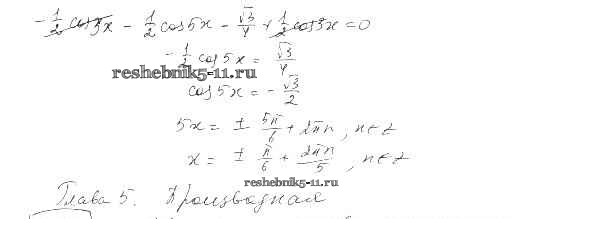 -1/2 cos3x - 1/2 cos5x - √3/4 + 1/2 cos3x = 0
-1/2 cos5x = √3/4
reshebnik5-11.ru
cos5x = -√3/2
5x = ± 5π/6 + 2πn, n∈z
x = ± π/6 + 2πn/5, n∈z
reshebnik5-11.ru
Глава 5. Производная